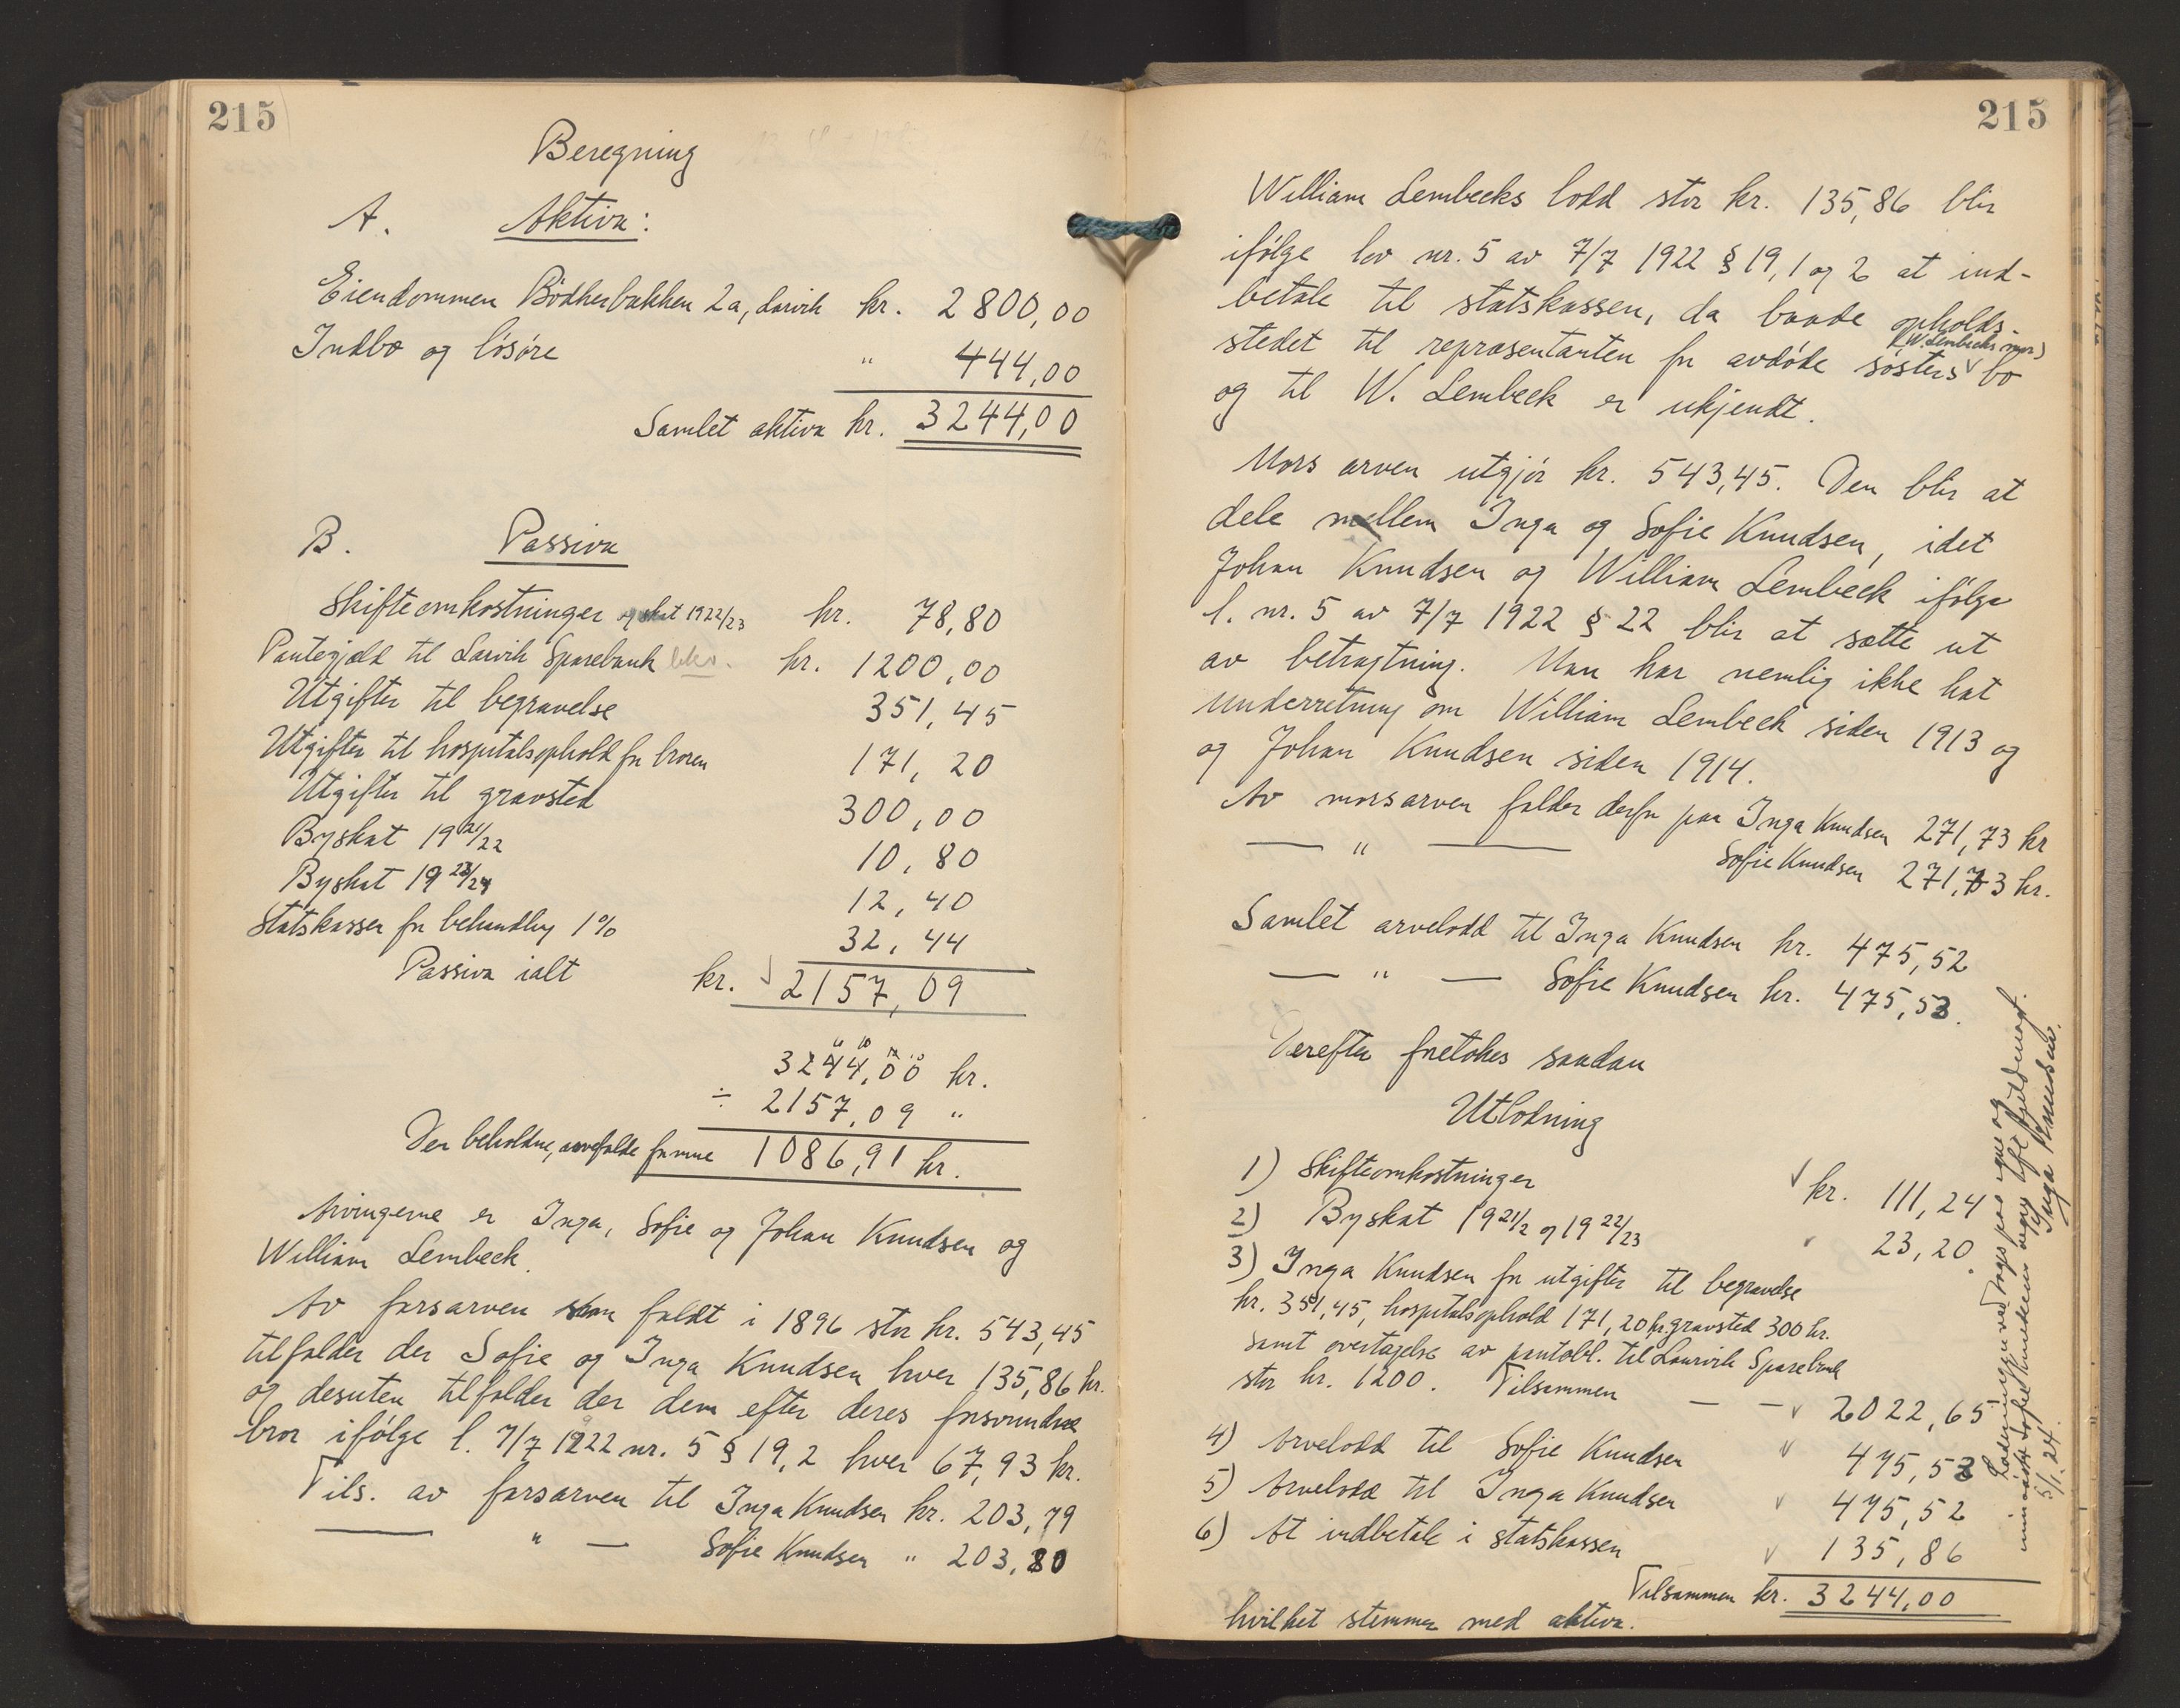 215
Beregning
A. Aktiva:
Eiendommen Bödkerbakken 2a, Larvik kr. 2800,00
Indbo og lösöre " 444,00
Samlet aktiva kr. 3244,00
B. Passiva
Skifteomkostninger og skat 1922/23 kr. 78,80
Pantegjæld til Larvik Sparebank kr. 1200,00
Utgifter til begravelse 351,45
Utgifter til hospitalsophold for broren 171,20
Utgifter til gravsted 300,00
Byskat 1921/22 10,80
Byskat 1923/24 12,40
Statskassen for behandling 1% 32,44
Passiva ialt kr. 2157,09
3244,00 kr.
÷ 2157,09 "
Den beholdne, arvefaldne formue 1086,91 kr.
Arvingerne er Inga, Sofie og Johan Knudsen og
William Lembeck.
Av farsarven som faldt i 1896 stor kr. 543,45
tilfalder der Sofie og Inga Knudsen hver 135,86 kr.
og desuten tilfalder der dem efter deres forsvundne
bror ifölge l. 7/7 1922 nr. 5 § 19,2 hver 67,93 kr.
Tils. av farsarven til Inga Knudsen kr. 203,79
— " — Sofie Knudsen " 203,80
215
William Lembecks lodd stor kr. 135,86 blir
ifölge lov nr. 5 av 7/7 1922 § 19, 1 og 2 at ind-
betale til statskassen, da baade opholds-
(W. Lembecks mor)
stedet til repræsentanten for avdöde sösters v bo
og til W. Lembeck er ukjendt.
Mors arven utgjör kr. 543,45. Den blir at
dele mellem Inga og Sofie Knudsen, idet
Johan Knudsen og William Lembeck ifölge
l. nr. 5 av 7/7 1922 § 22 blir at sætte ut
av betragtning. Man har nemlig ikke hat
underretning om William Lembeck siden 1913 og
og Johan Knudsen siden 1914.
Av morsarven falder derfor paa Inga Knudsen 271,73 kr
— " — Sofie Knudsen 271,73 kr.
Samlet arvelodd til Inga Knudsen kr. 475,52
— " — Sofie Knudsen kr. 475,53.
Derefter foretokes saadan
Utlodning
1) Skifteomkostninger kr. 111,24
2) Byskat 1921/2 og 1922/23 23,20
3) Inga Knudsen for utgifter til begravelse
kr. 351,45, hospitalsophold 171,20 kr. gravsted 300 kr.
samt overtagelse av pantobl. til Laurvik Sparebank
stor kr. 1200. Tilsammen — — 2022,65
4) Arvelodd til Sofie Knudsen 475,53
5) Arvelodd til Inga Knudsen 475,52
6) At indbetale i statskassen 135,86
Tilsammen kr. 3244,00
hvilket stemmer med aktiva.
paa egne og
min söster Sofie Knudsens vegne fuldmagt.
5/1. 24. Inga Knudsen.